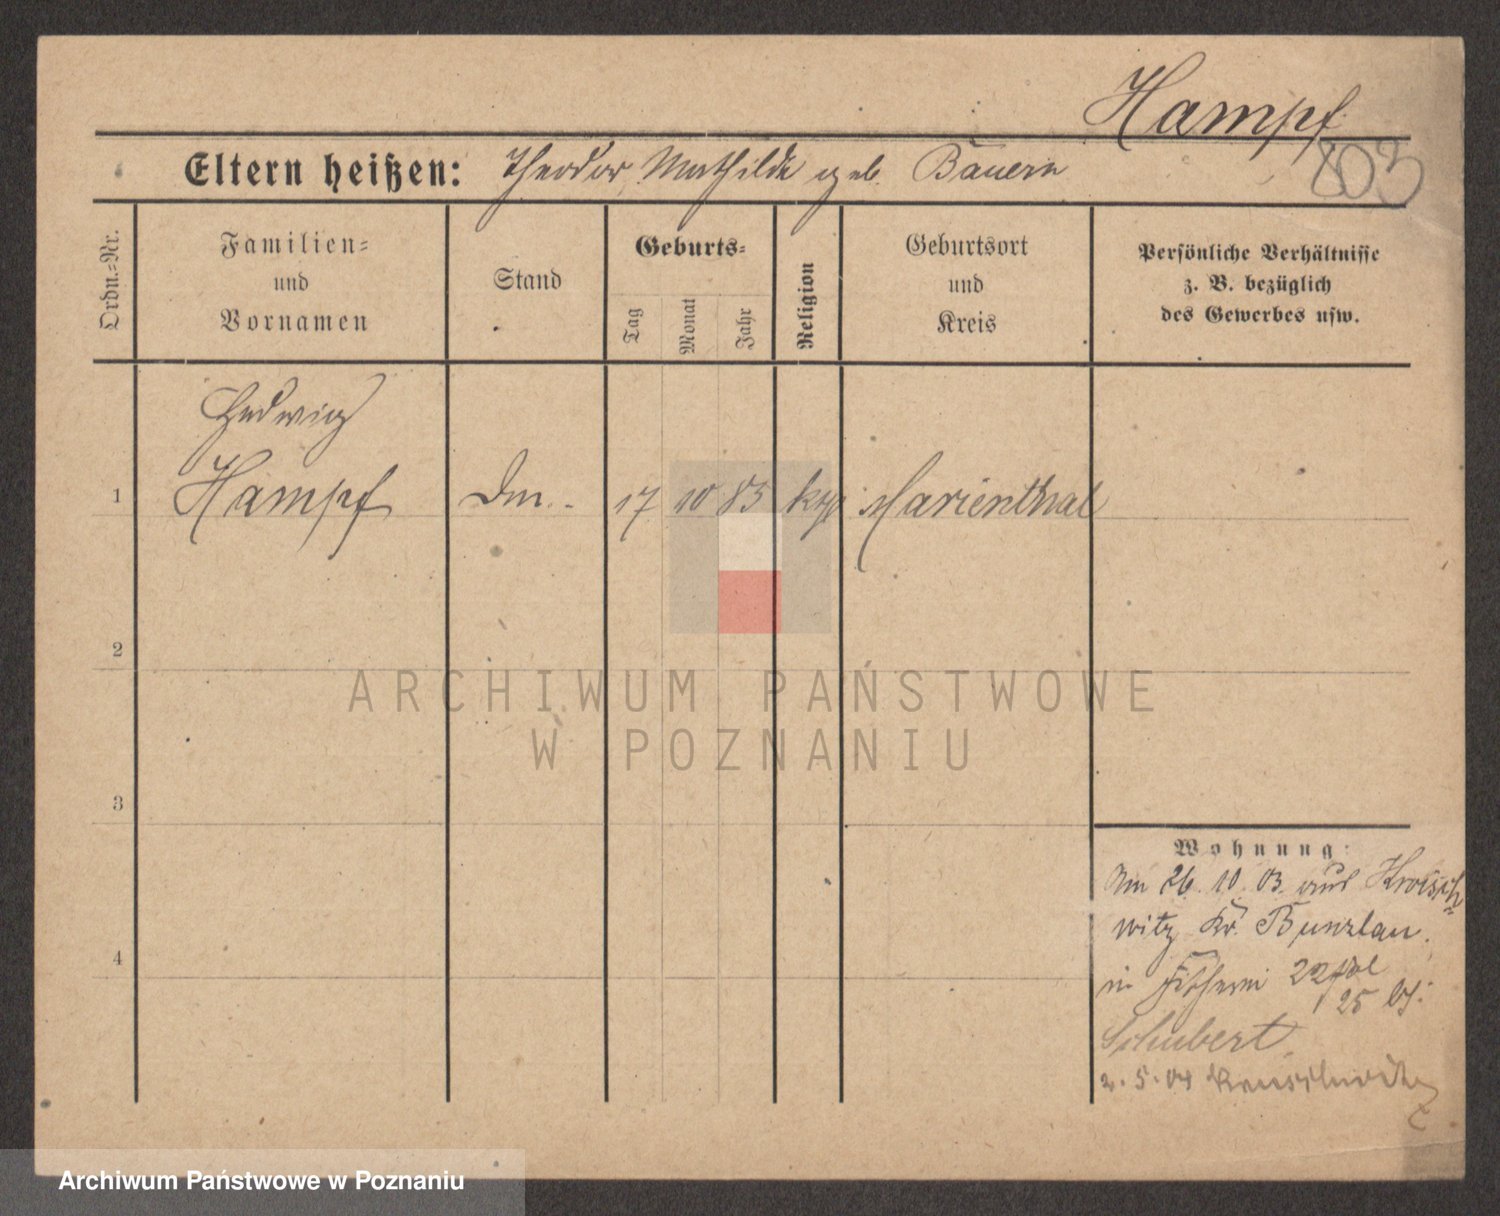 Hampf
803
Eltern heißen: Theodor, Mathilde geb. Bauern
Ordn.-Nr.
Familien-
und
Vornamen
Stand
Geburts-
Tag
Monat
Jahr
Religion
Geburtsort
und
Kreis
Persönliche Verhältnisse
z. B. bezüglich
des Gewerbes usw.
Hedwig
1 Hampf 17 10 85 Marienthal
2
3
4
Wohnung:
Am 26. 10. 03. aus Kroisch-
witz Kr. Bunzlau.
in 22
25
Schubert
2. 5. 04
ARCHIWUM PAŃSTWOWE
W POZNANIU
Archiwum Państwowe w Poznaniu